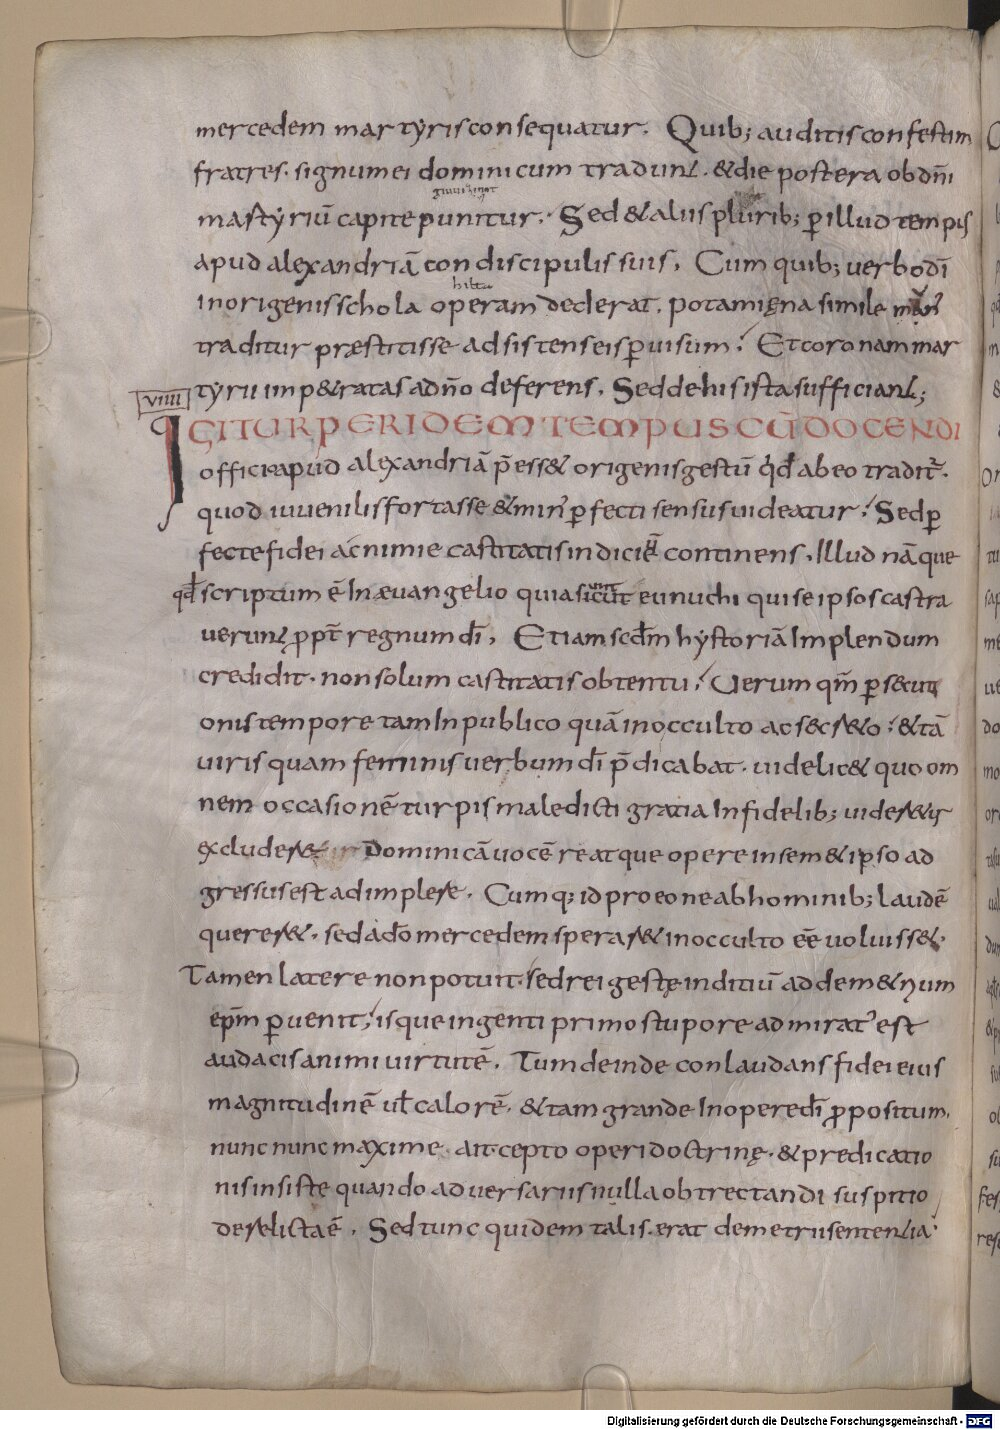 mercedem martyris consequatur. Quib; auditis confestim
fratres. signum ei dominicum tradunt. & die postera ob dn̄i
martyriū capite punitur. Sed & aliis plurib; p̲ illud tempus
apud alexandriā condiscipulis suis. Cum quib; uerbo dī
in origenis schola operam dederat. potamięna simile
traditur præstitisse adsistens eis p̲ uisum. Et coronam mar
tyrii imp&ratas a dn̄o deferens. Sed de his ista sufficiant;
viiii
IGITUR PER IDEM TEMPUS CŪ DOCENDI
officii apud alexandriā p̄ess& origenis gestū qd̄ ab eo tradit̄.
quod iuuenilis fortasse & min' p̲fecti sensus uideatur. Sed p̲
fecte fidei ac nimie castitatis indiciū continens. Illud nāque
qd̄ scriptum ē In æuangelio quia sicut sunt eunuchi qui se ipsos castra
uerunt ꝓpt̄ regnum dī. Etiam scd̄m hystoriā Implendum
credidit. non solum castitatis obtentu. Uerum qm̄ p̲secuti
onis tempore tam In publico quā in occulto ac secr&o. & tā
uiris quam feminis uerbum dī p̄dicabat. uidelic& quo om
nem occasionē turpis maledicti gratia Infidelib; uideretur
excluder& Dominicā uocē re atque opere in sem&ipso ad
gressus est adimplere. Cumq; id pro eo ne ab hominib; laudē
querer&. sed a dō mercedem sperar& in occulto eē uoluiss&.
Tamen latere non potuit. sed rei gestę inditiū ad dem&rium
ep̄m p̲uenit, is que ingenti primo stupore admirat' est
audacis animi uirtutē. Tum deinde conlaudans fidei eius
magnitudinē ul̄ calorē. & tam grande In opere dī ꝓpositum.
nunc nunc maxime. ait. cepto operi doctrinę. & predicatio
nis insiste quando aduersariis nulla obtrectandi suspitio
derelicta ē. Sed tunc quidem talis. erat demetrii sententia.
Digitalisierung gefördert durch die Deutsche Forschungsgemeinschaft - DFG